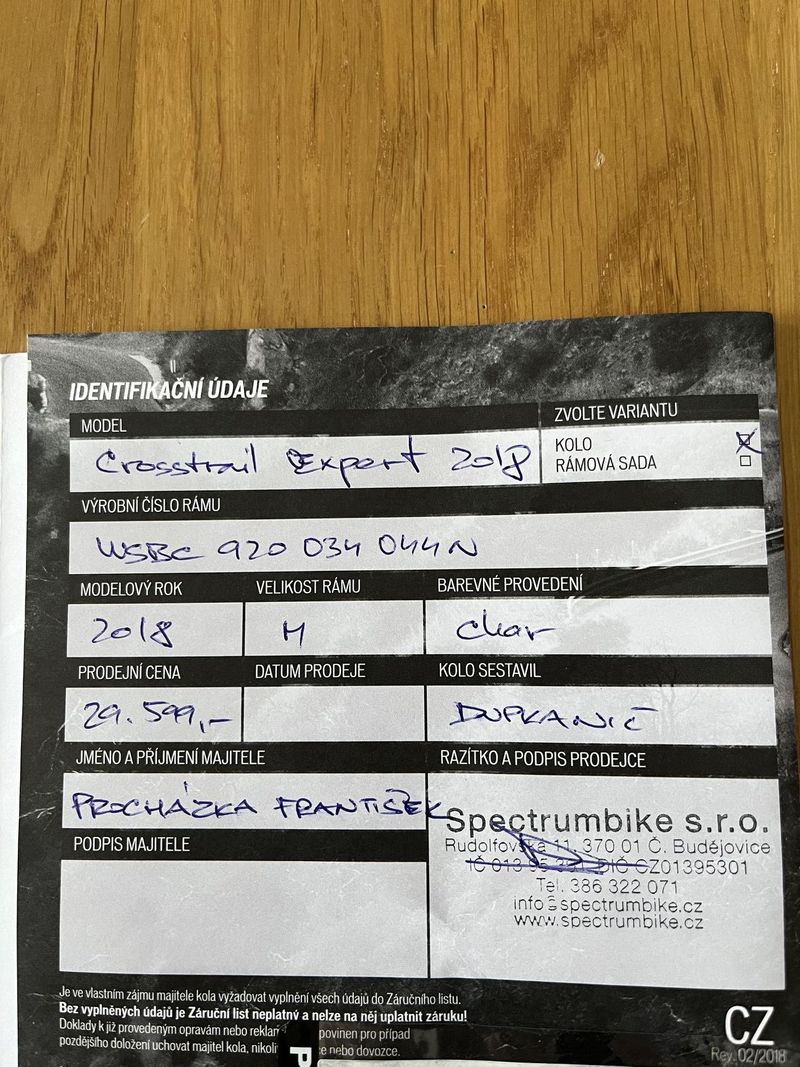 IDENTIFIKAČNÍ ÚDAJE
MODEL
ZVOLTE VARIANTU
Crosstrail Expert 2018
KOLO
RÁMOVÁ SADA
VÝROBNÍ ČÍSLO RÁMU
WSBC 920 034 044N
MODELOVÝ ROK
VELIKOST RÁMU
BAREVNÉ PROVEDENÍ
2018
M
char
PRODEJNÍ CENA
DATUM PRODEJE
KOLO SESTAVIL
29.599,-
DUPKANIČ
JMÉNO A PŘÍJMENÍ MAJITELE
RAZÍTKO A PODPIS PRODEJCE
PROCHÁZKA FRANTIŠEK
Spectrumbike s.r.o.
Rudolfovská 11, 370 01 Č. Budějovice
IČ 013 95 301 DIČ CZ01395301
Tel. 386 322 071
info@spectrumbike.cz
www.spectrumbike.cz
PODPIS MAJITELE
Je ve vlastním zájmu majitele kola vyžadovat vyplnění všech údajů do Záručního listu.
Bez vyplněných údajů je Záruční list neplatný a nelze na něj uplatnit záruku!
Doklady k již provedeným opravám nebo reklam povinen pro případ
pozdějšího doložení uchovat majitel kola, nikoli ce nebo dovozce.
P
CZ
Rev. 02/2018